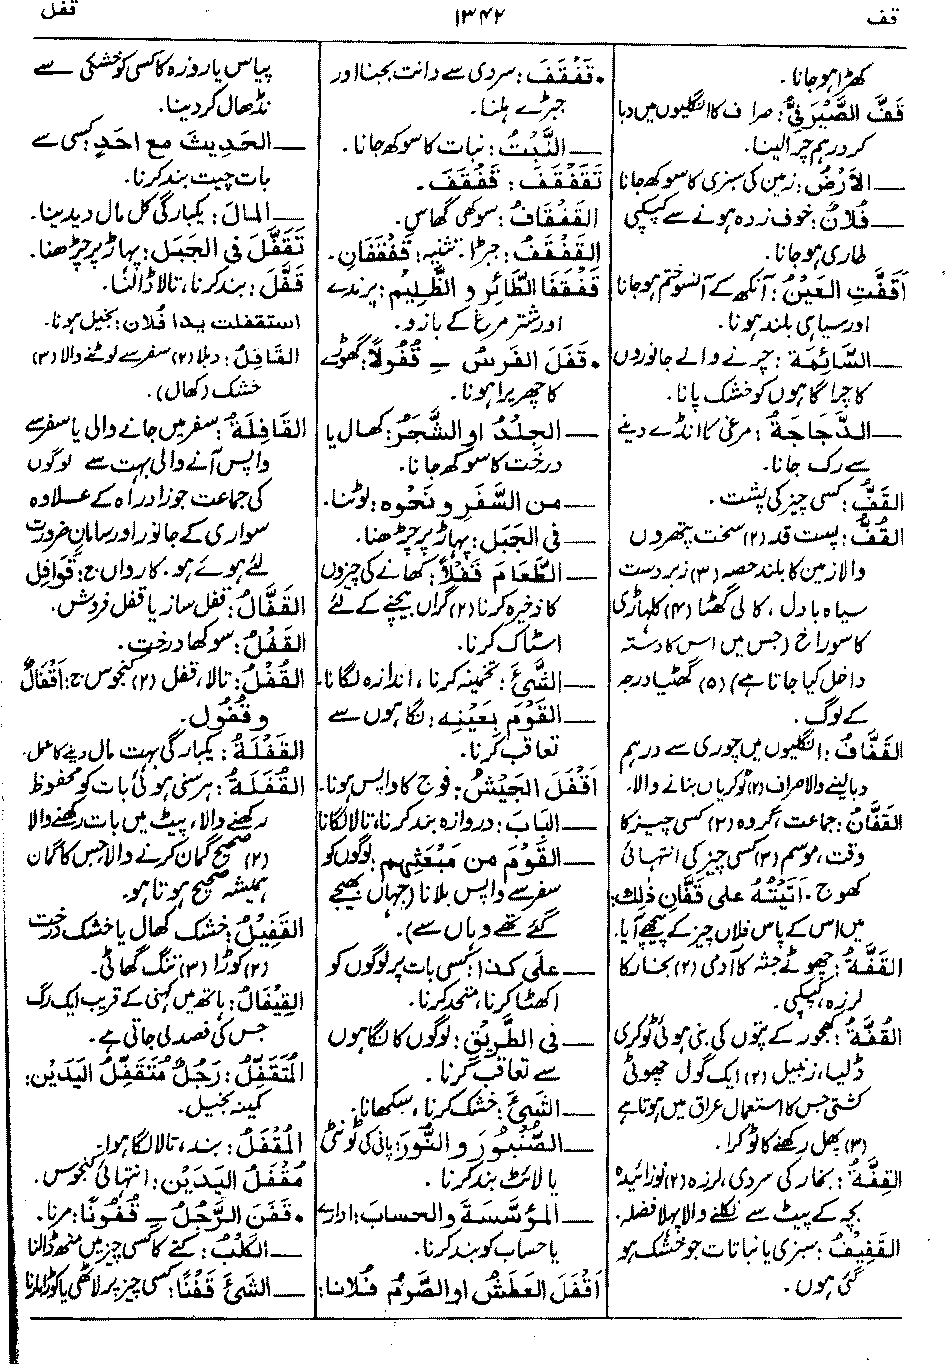 قف
۱۳۴۲
قفل
کھڑا ہو جانا.
قَفَّ الصَّيْرَفِيُّ: صراف کا انگلیوں میں دبا
کر درہم چرا لینا.
— الأرْضُ: زمین کی سبزی کا سوکھ جانا
— فُلَانٌ: خوف زدہ ہونے سے کپکپی
طاری ہو جانا.
أقَفَّتِ العَيْنُ: آنکھ کے آنسو ختم ہو جانا
اور سیاہی بلند ہونا.
— السَّائِمَةُ: چرنے والے جانوروں
کا چرا گاہوں کو خشک پانا.
— الدَّجَاجَةُ: مرغی کا انڈے دینے
سے رک جانا.
القَفُّ: کسی چیز کی پشت.
القُفُّ: پست قد (۲) سخت پتھروں
والا زمین کا بلند حصہ (۳) زبردست
سیاہ بادل، کالی گھٹا (۴) کلہاڑی
کا سوراخ (جس میں اس کا دستہ
داخل کیا جاتا ہے) (۵) گھٹیا درجہ
کے لوگ.
القَفَّافُ: انگلیوں میں چوری سے درہم
دبا لینے والا صراف (۲) ٹوکریاں بنانے والا.
القَفَّانُ: جماعت، گروہ (۲) کسی چیز کا
وقت، موسم (۳) کسی چیز کی انتہائی
کھوج. أتَيْتُهُ على قَفَّانِ ذلِكَ:
میں اس کے پاس فلاں چیز کے پیچھے آیا.
القَفَّةُ: چھوٹے جثہ کا آدمی (۲) بخار کا
لرزہ، کپکپی.
القُفَّةُ: کھجور کے پتوں کی بنی ہوئی ٹوکری
ڈلیا، زنبیل (۲) ایک گول چھوٹی
کشتی جس کا استعمال عراق میں ہوتا ہے
(۳) پھل رکھنے کا ٹوکرا.
القِفَّةُ: بخار کی سردی، لرزہ (۲) نوزائیدہ
بچہ کے پیٹ سے نکلنے والا پہلا فضلہ.
القَفِيْفُ: سبزی یا نباتات جو خشک ہو
گئی ہوں.
• قَفْقَفَ: سردی سے دانت بجنا اور
جبڑے ہلنا.
— النَّبْتُ: نبات کا سوکھ جانا.
تَقَفْقَفَ: قَفْقَفَ.
القَفْقَافُ: سوکھی گھاس.
القَفْقَفُ: جبڑا. تثنیہ: قَفْقَفَانِ.
قَفْقَفَا الطَّائِرِ و الظَّلِيْمِ: پرندے
اور شتر مرغ کے بازو.
• قَفَلَ الفَرَسُ — قُفُولًا: گھوڑے
کا چھریرا ہونا.
— الجِلْدُ او الشَّجَرُ: کھال یا
درخت کا سوکھ جانا.
— من السَّفَرِ و نَحْوِه: لوٹنا.
— فى الجَبَلِ: پہاڑ پر چڑھنا.
— الطَّعَامَ قَفْلًا: کھانے کی چیزوں
کا ذخیرہ کرنا (۲) گراں بیچنے کے لئے
اسٹاک کرنا.
— الشَّيْءَ: تخمینہ کرنا، اندازہ لگانا.
— القَوْمَ بِعَيْنِه: نگاہوں سے
تعاقب کرنا.
أقْفَلَ الجَيْشُ: فوج کا واپس ہونا.
— البَابَ: دروازہ بند کرنا، تالا لگانا
— القَوْمَ من مَبْعَثِهِم: لوگوں کو
سفر سے واپس بلانا (جہاں بھیجے
گئے تھے وہاں سے).
— على كذا: کسی بات پر لوگوں کو
اکٹھا کرنا، متحد کرنا.
— فى الطَّرِيْقِ: لوگوں کا نگاہوں
سے تعاقب کرنا.
— الشَّيْءَ: خشک کرنا، سکھانا.
— الصُّنْبُورَ و النُّورَ: پانی کی ٹونٹی
یا لائٹ بند کرنا.
— المؤسَّسَةَ والحِسابَ: ادارے
یا حساب کو بند کرنا.
أقْفَلَ العَطَشُ او الصَّوْمُ فُلَانًا:
پیاس یا روزہ کا کسی کو خشکی سے
نڈھال کر دینا.
— الحَدِيثَ مع احَدٍ: کسی سے
بات چیت بند کرنا.
— المالَ: یکبارگی کل مال دیدینا.
تَقَفَّلَ فى الجَبَلِ: پہاڑ پر چڑھنا.
قَفَّلَ: بند کرنا، تالا ڈالنا.
استقفلت يدا فُلان: بخیل ہونا.
القَافِلُ: دبلا (۲) سفر سے لوٹنے والا (۳)
خشک (کھال).
القَافِلَةُ: سفر میں جانے والی یا سفر سے
واپس آنے والی بہت سے لوگوں
کی جماعت جو زاد راہ کے علاوہ
سواری کے جانور اور سامان ضرورت
لئے ہوئے ہو. کارواں ج: قَوَافِل
القَفَّالُ: قفل ساز یا قفل فروش.
القَفْلُ: سوکھا درخت.
القُفْلُ: تالا، قفل (۲) کنجوس ج: أقْفَالٌ
و قُفُول.
القَفْلَةُ: یکبارگی بہت مال دینے کا عمل.
القُفَلَةُ: ہر سنی ہوئی بات کو محفوظ
رکھنے والا، پیٹ میں بات رکھنے والا
(۲) صحیح گمان کرنے والا، جس کا گمان
ہمیشہ صحیح ہوتا ہو.
القَفِيْلُ: خشک کھال یا خشک درخت
(۲) کوڑا (۳) تنگ گھاٹی.
القِيْفَالُ: ہاتھ میں کہنی کے قریب ایک رگ
جس کی فصد لی جاتی ہے.
المُتَقَفِّلُ: رَجُلٌ مُتَقَفِّلُ اليَدَيْنِ:
کمینہ بخیل.
المُقْفَلُ: بند، تالا لگا ہوا.
مُقْفَلُ اليَدَيْنِ: انتہائی کنجوس.
• قَفَنَ الرَّجُلُ — قُفُونًا: مرنا.
— الكَلْبُ: کتے کا کسی چیز میں منھ ڈالنا
— الشَّيْءَ قَفْنًا: کسی چیز پر لاٹھی یا کوڑا مارنا